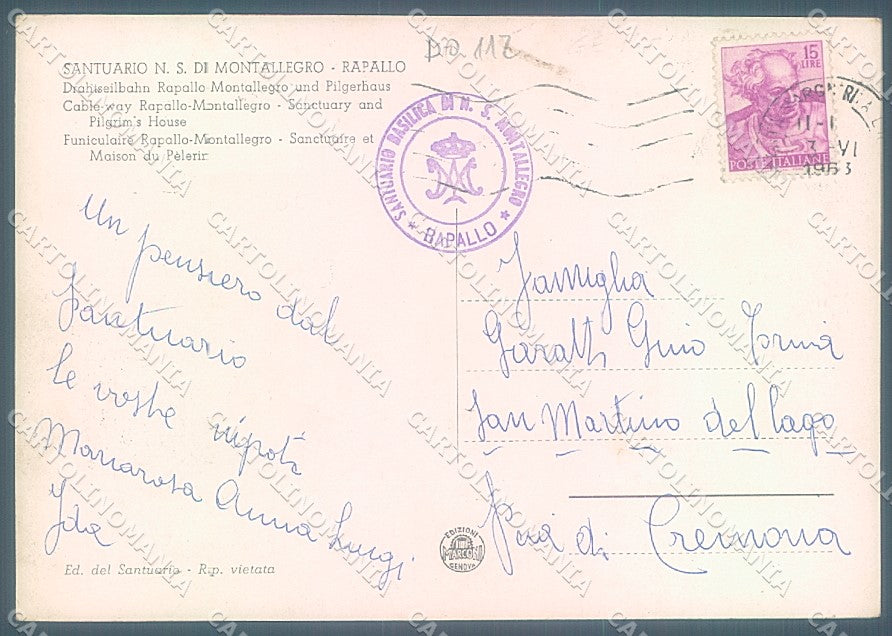 DO 117
SANTUARIO N. S. DI MONTALLEGRO - RAPALLO
Drahtseilbahn Rapallo-Montallegro und Pilgerhaus
Cable-way Rapallo-Montallegro - Sanctuary and
Pilgrim's House
Funiculaire Rapallo-Montallegro - Sanctuaire et
Maison du Pèlerin
SANTUARIO BASILICA DI N. S. MONTALLEGRO
RAPALLO
15
LIRE
POSTE ITALIANE
11-1
3 VI
1963
Un pensiero dal
Santuario
le vostre nipoti
Mariarosa Anna Luigi
Ida
Famiglia
Gino
San Martino del lago
di Cremona
EDIZIONI
MARCONI
GENOVA
Ed. del Santuario - Rip. vietata
CARTOLINOMANIA